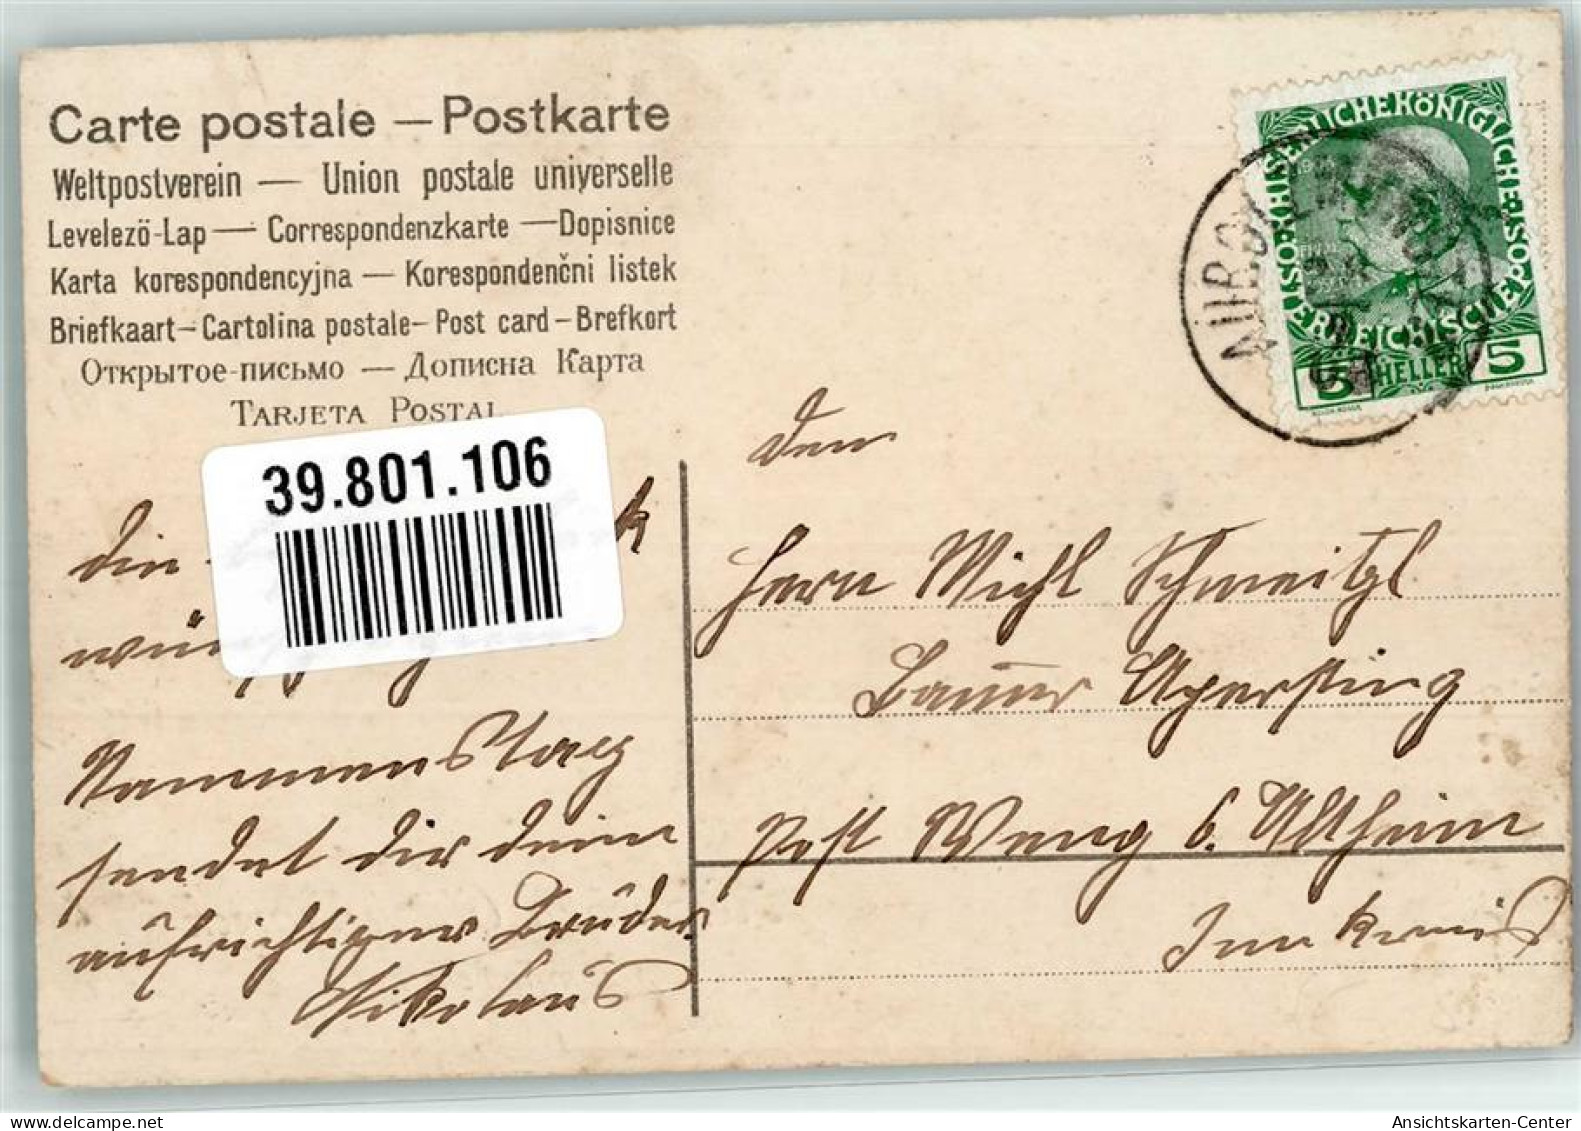 Carte postale — Postkarte
Weltpostverein — Union postale universelle
Levelező-Lap — Correspondenzkarte — Dopisnice
Karta korespondencyjna — Korespondenční listek
Briefkaart – Cartolina postale – Post card – Brefkort
Открытое письмо — Дописна Карта
TARJETA POSTAL
39.801.106
KAISERLICHE KÖNIGLICHE ÖSTERREICHISCHE POST
5 HELLER 5
den
Herrn Michl Schweitzl
Bauer Axersting
Post Weng b. Altheim
Innkreis
Nammenstag
sendet dir dein
aufrichtiger Bruder
Nikolaus
Ansichtskarten-Center